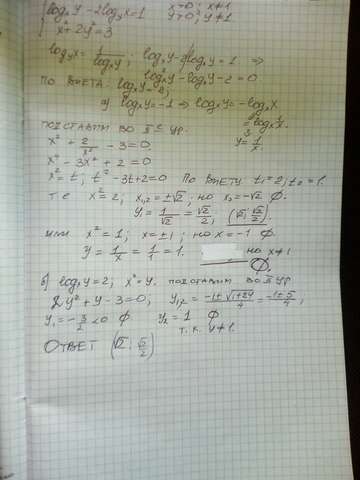 log_x y - 2log_y x = 1   x>0; x≠1
x² + 2y² = 3   y>0; y≠1
log_y x = 1/log_x y; log_x y - 2/log_x y = 1 ⇒
log²_x y - log_x y - 2 = 0
ПО ВИЕТА: log_x y = 2;
а) log_x y = -1 ⇒ log_x y = -log_x x
= log_x 1/x.
ПОДСТАВИМ ВО II УР. y = 1/x.
x² + 2/x² - 3 = 0.
x⁴ - 3x² + 2 = 0
x² = t; t² - 3t + 2 = 0 ПО ВИЕТУ t₁ = 2; t₂ = 1.
т.е x² = 2; x₁,₂ = ±√2; но x₂ = -√2 ∅.
y₁ = 1/√2 = √2/2; (√2; √2/2)
ИЛИ x² = 1; x = ±1; но x = -1 ∅.
y = 1/x = 1/1 = 1. но x≠1 ∅.
б) log_x y = 2; x² = y. ПОДСТАВИМ ВО II УР
2y² + y - 3 = 0; y₁,₂ = (-1±√1+24)/4 = (-1±5)/4;
y₁ = -3/2 < 0 ∅ y₂ = 1 ∅
т.к. y≠1.
ОТВЕТ (√2; √2/2)